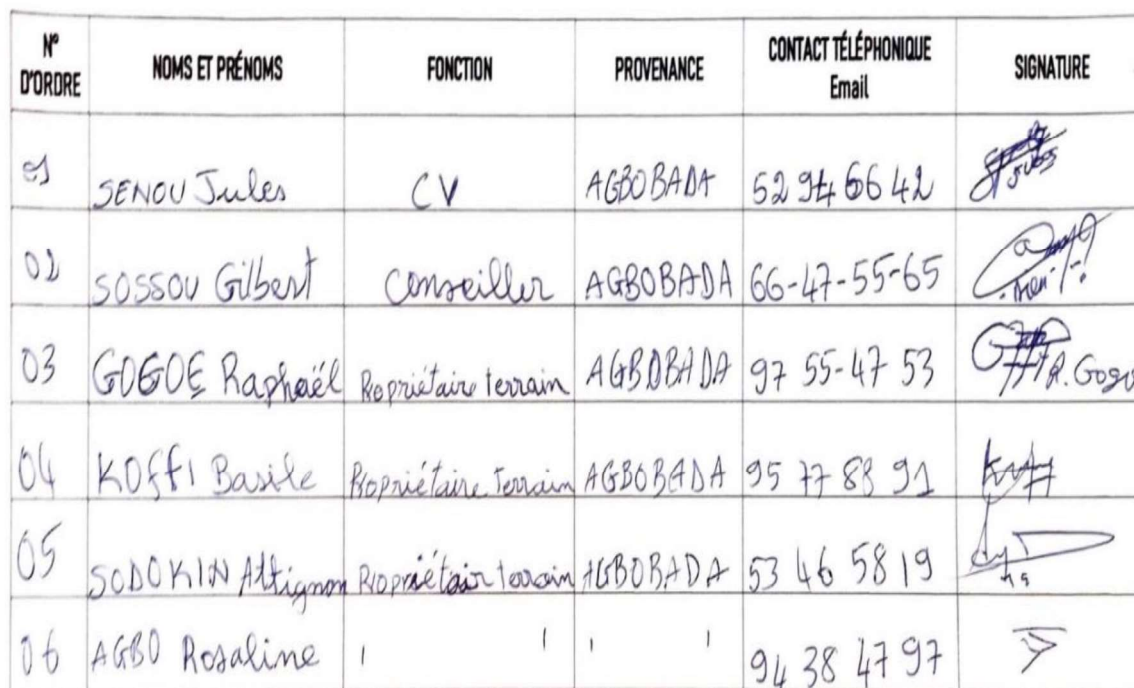 N° D'ORDRE NOMS ET PRÉNOMS FONCTION PROVENANCE CONTACT TÉLÉPHONIQUE Email SIGNATURE
01 SENOU Jules CV AGBOBADA 52 94 66 42
02 SOSSOU Gilbert Conseiller AGBOBADA 66-47-55-65
03 GOGOE Raphaël Propriétaire terrain AGBOBADA 97 55-47 53 R. Gogo
04 KOffI Basile Propriétaire terrain AGBOBADA 95 77 88 91
05 SODOKIN Attignon Propriétair terrain AGBOBADA 53 46 58 19
06 AGBO Rosaline ' ' ' ' 94 38 47 97